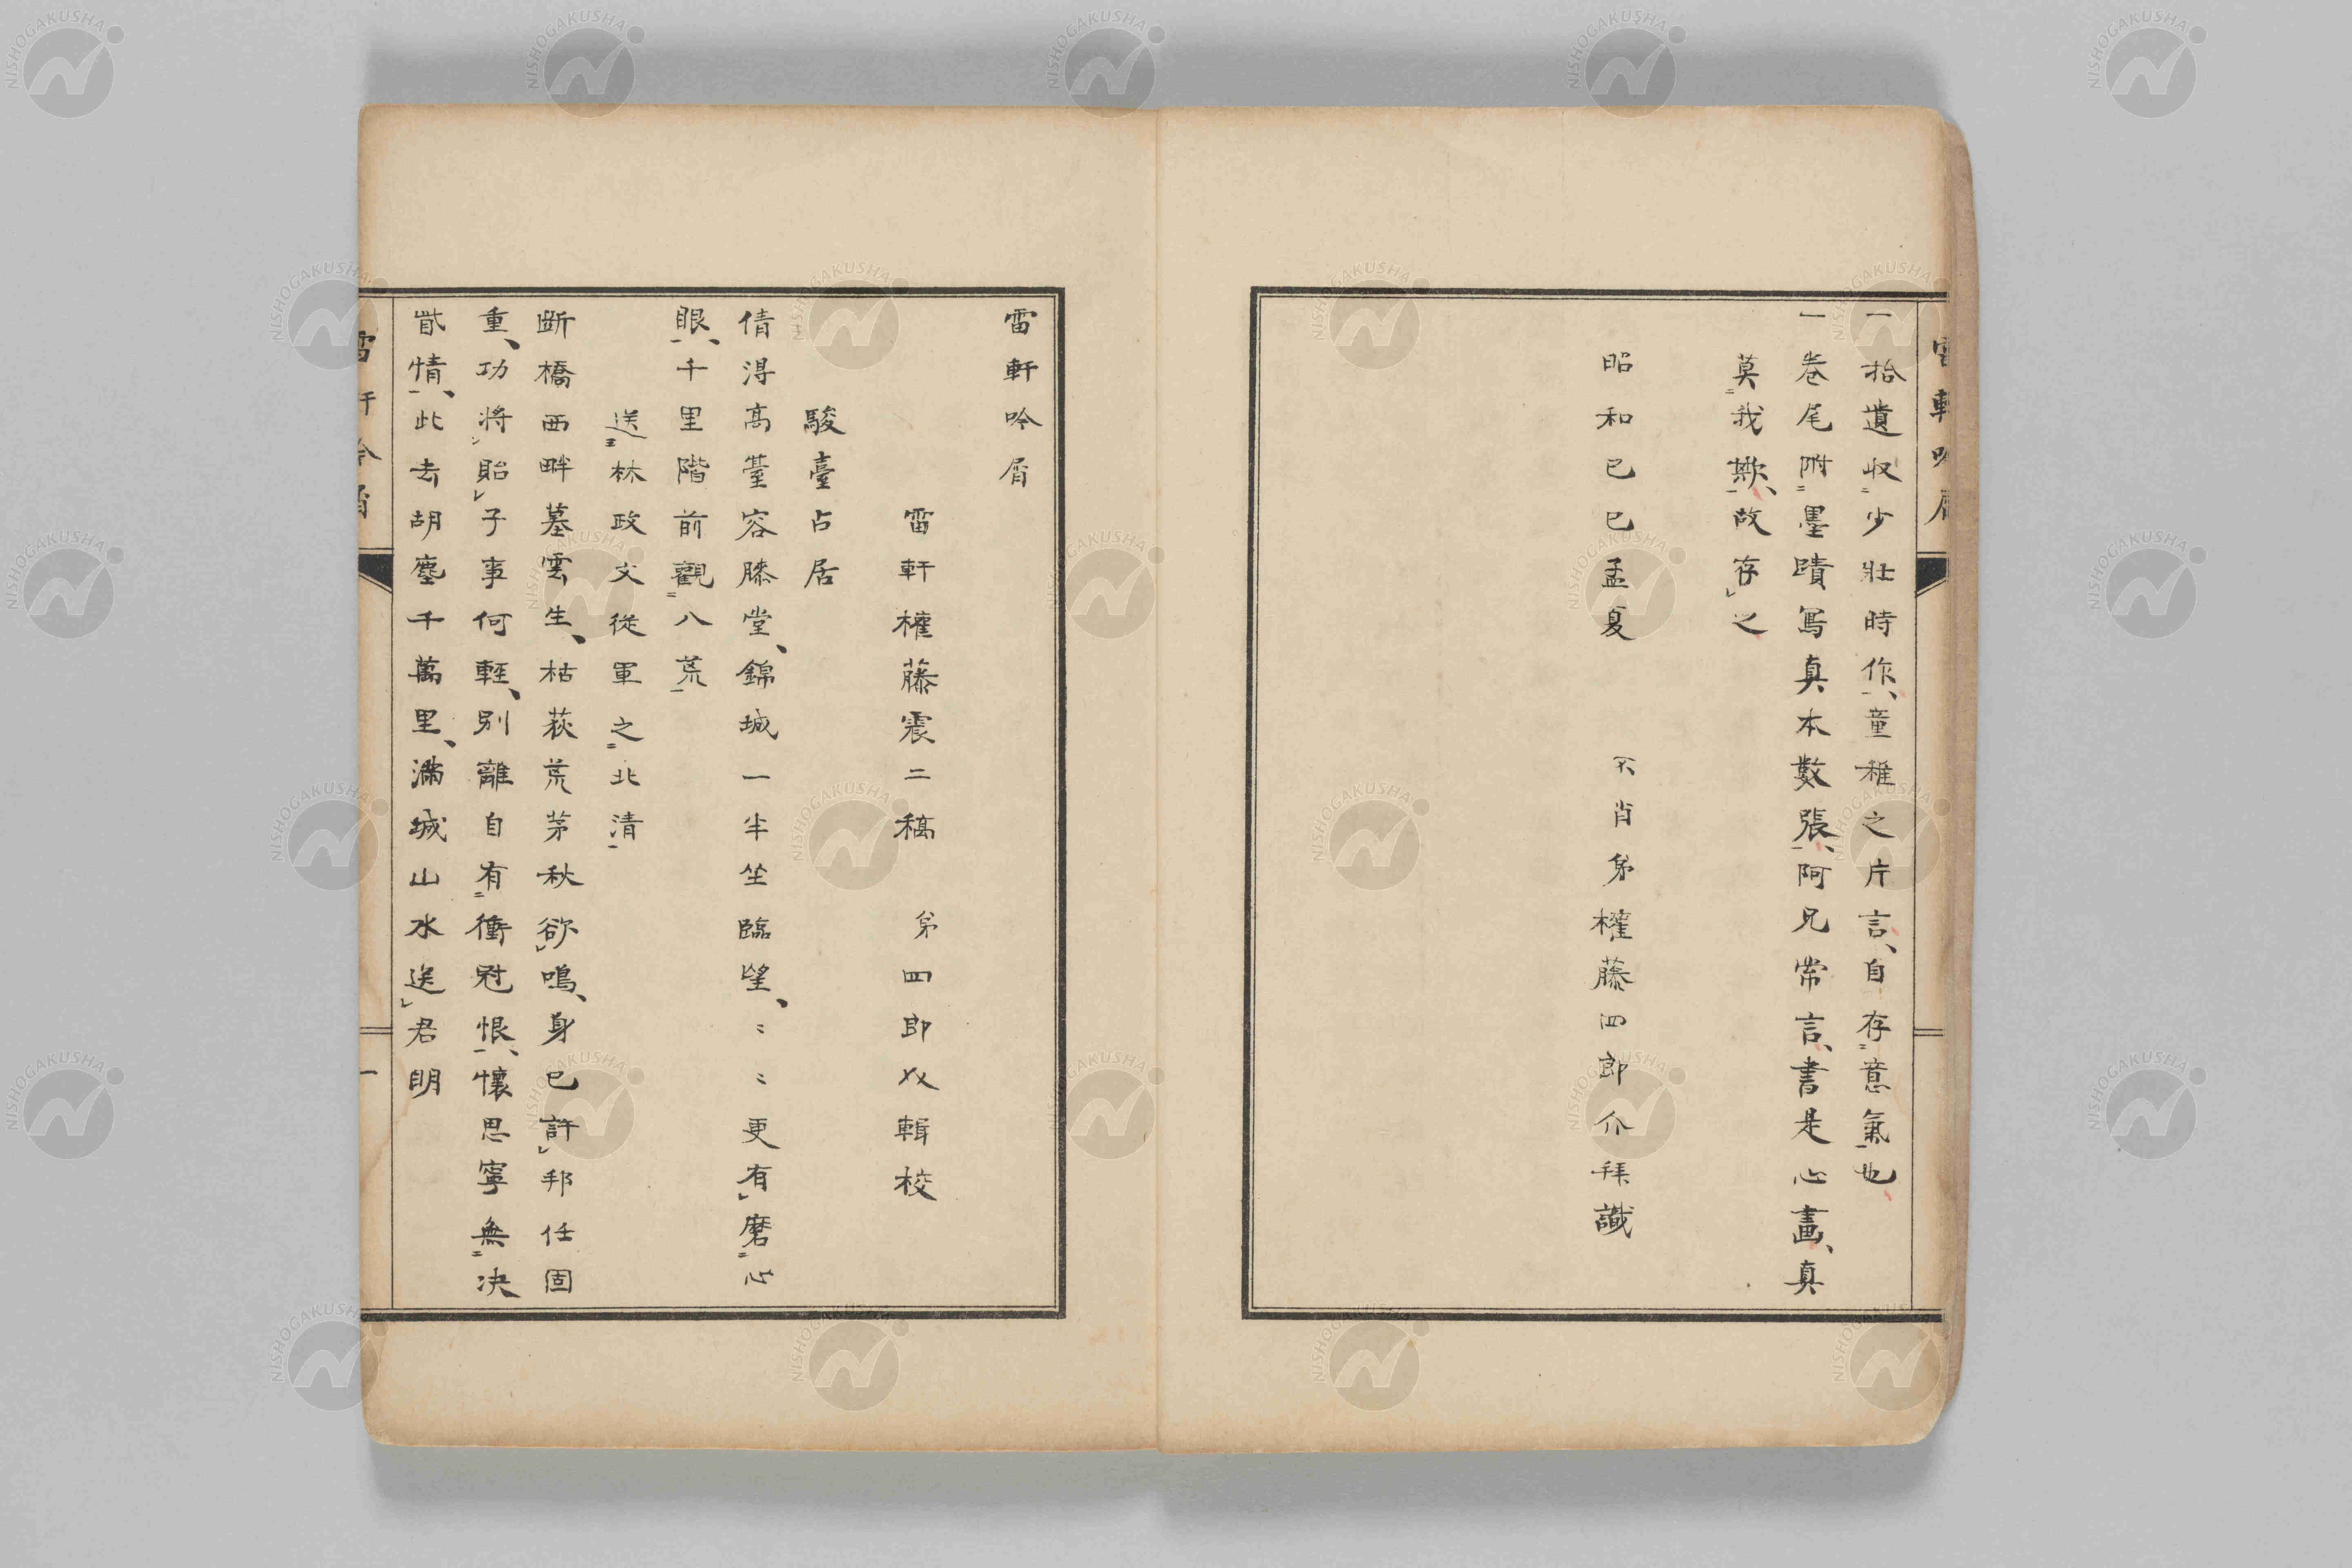 一拾遺収少壮時作、童稚之片言、自存意氣也
一卷尾附墨蹟寫真本數張、阿兄常言、書是心畫、真
莫我欺、故存之
昭和己巳孟夏　不肖弟權藤四郎介拜識
雷軒吟屑
雷軒權藤震二稿　弟四郎收輯校
駿臺占居
倩得高臺容膝堂、錦城一半坐臨望、〻〻更有磨心
眼、千里階前觀八荒
送林政文從軍之北清
斷橋西畔墓雲生、枯荻荒茅秋欲鳴、身已許邦任固
重、功將貽子事何輕、別離自有衝冠恨、懷思寧無决
眥情、此去胡塵千萬里、滿城山水送君明
雷軒吟屑
一
雷軒吟屑
NISHOGAKUSHA